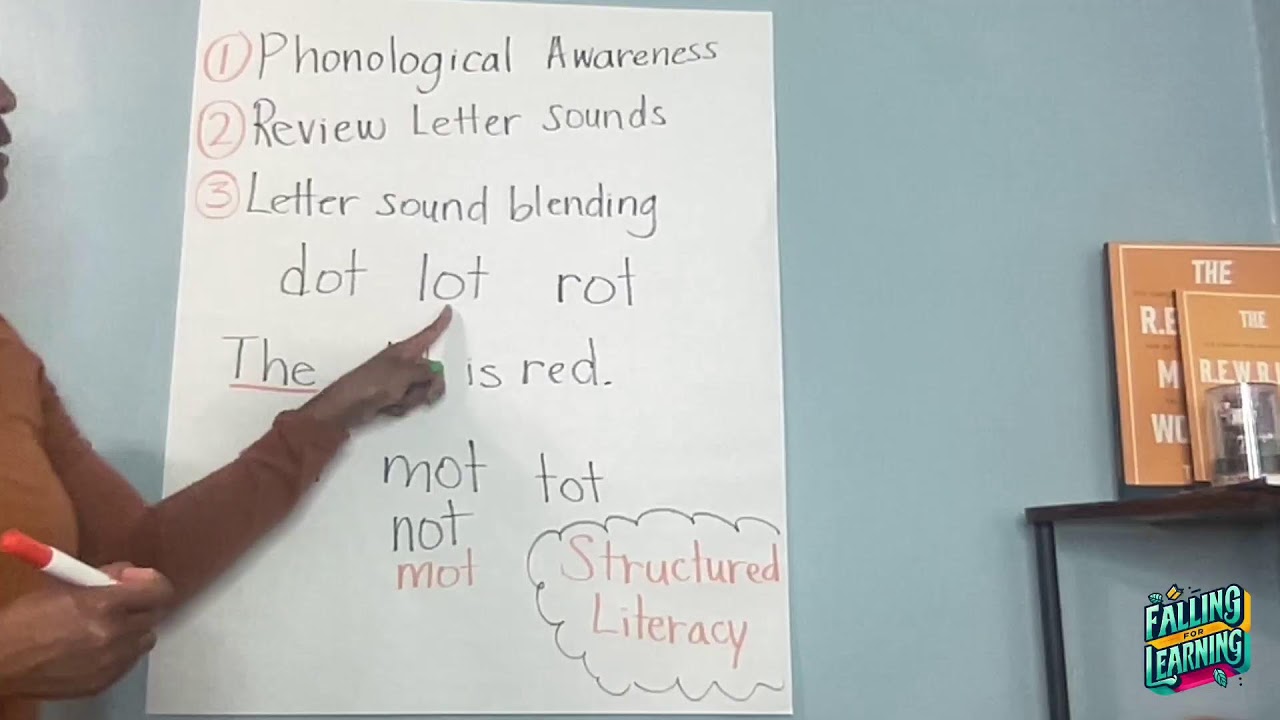 ① Phonological Awareness
② Review Letter Sounds
③ Letter sound blending
dot lot rot
The is red.
mot tot
not
mot
Structured
Literacy
THE
R.E
M
WO
THE
R.E.W.R.
FALLING
FOR
LEARNING